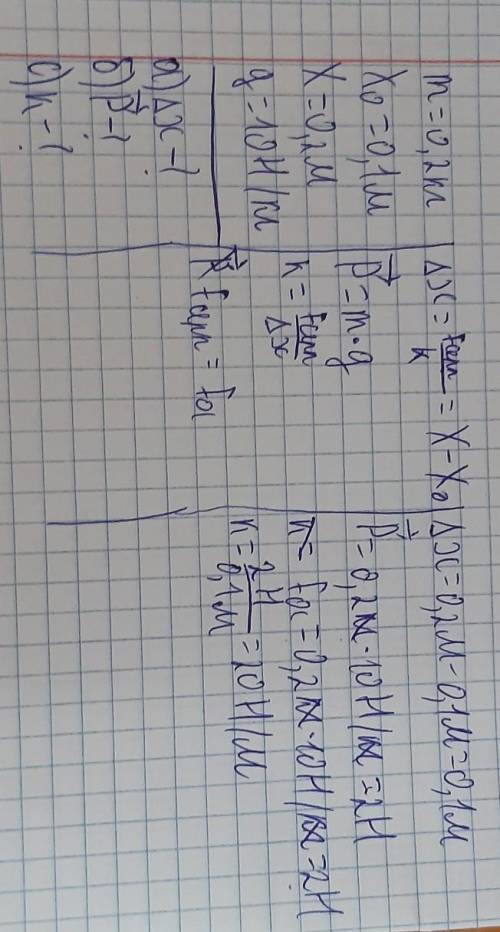 m = 0,2кг
x₀ = 0,1м
x = 0,2м
g = 10Н/кг
а) Δx - ?
б) P⃗ - ?
с) к - ?
Δx = Fупр/к = x - x₀
P⃗ = m·g
к = Fупр/Δx
Fупр = Fд
Δx = 0,2м - 0,1м = 0,1м
P⃗ = 0,2кг·10Н/кг = 2Н
Fд = 0,2кг·10Н/кг = 2Н
к = 2Н/0,1м = 20Н/м